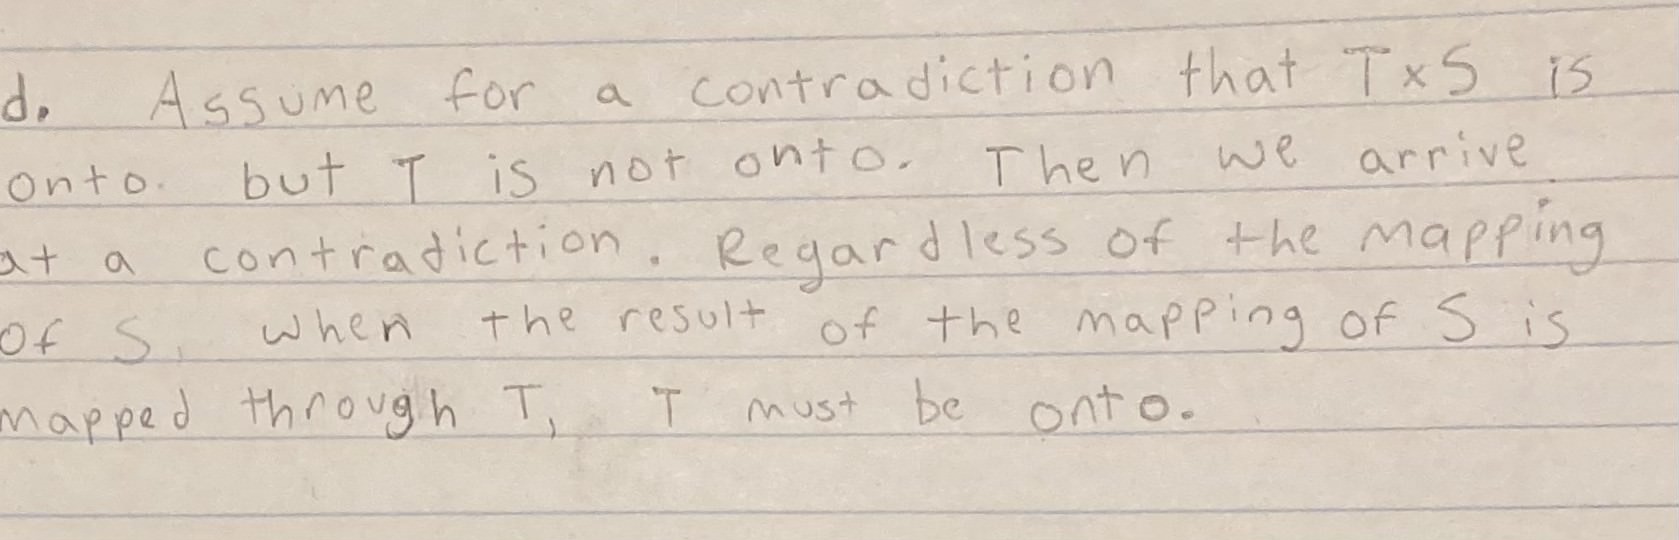 d. Assume for a contradiction that T×S is
onto. but T is not onto. Then we arrive
at a contradiction. Regardless of the mapping
of S, when the result of the mapping of S is
mapped through T, T must be onto.